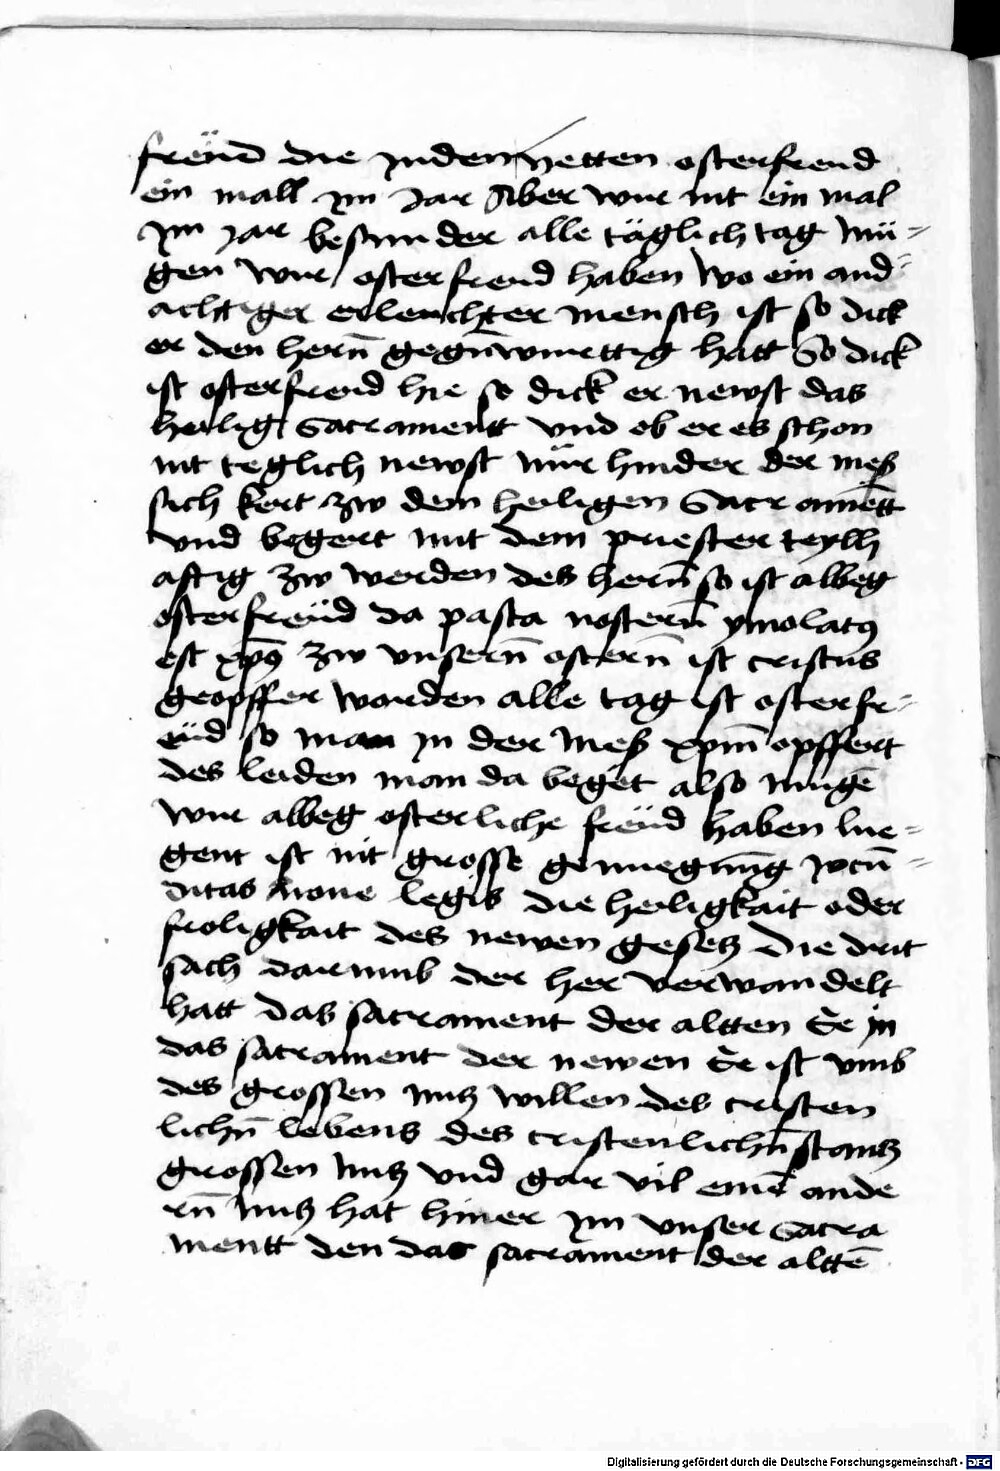 freüd die juden hetten osterfreud
ein mall ym Jar Aber wir nit ein mal
ym jar besunder alle täglich tag mü-
gen wir osterfreud haben wo ein and-
achtiger erleuchter mensch ist so dick
er den hern̄ gegn̄wurttig hatt So dick
ist osterfreud hie so dick er newst das
heilig Sacramentt vnd ob er es schon
nit teglich newst nür hinder der meß
sich kert zw dem heiligen Sacramētt
vnd begert mit dem priester teylh
aftig zw werden des hern̄ so ist albeg
osterfreüd da pasca nostern̄ ymolatꝰ
est xp̄ꝰ zw vnsern̄ ostern̄ ist cristus
geopffer worden alle tag ist osterfr-
eüd so man jn der meß xpm̄ opffert
des leiden man da beget also mugē
wir albeg osterliche freüd haben lue-
gent ist nit grosse genuegūg Jocūn-
ditas noue legis die heiligkait oder
froligkait des newen gesetz Die drit
sach darumb der her verwandelt
hatt das sacrament der altten Ee jn
das sacrament der newen Ee ist vmb
des grossen nutz willen des cristen
lichn̄ lebens des cristenlichn̄ stantz
grossen nutz vnd gar vil einē ande
rn̄ nutz hat hiner ym vnser Sacra
mentt den das sacrament der alttē
Digitalisierung gefördert durch die Deutsche Forschungsgemeinschaft - DFG